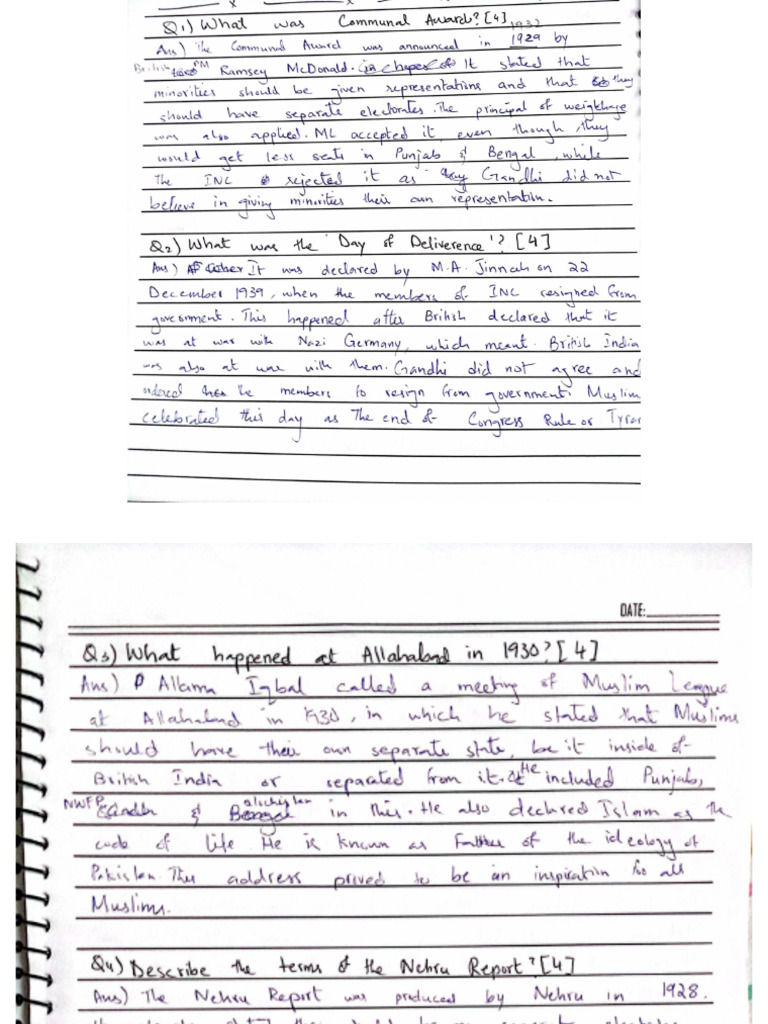 Q1) What was Communal Award? [4]
Ans) The Communal Award was announced in 1932 by
British PM Ramsey McDonald. It stated that
minorities should be given representations and that they
should have separate electorates. The principal of weightage
was also applied. ML accepted it, even though, they
would get less seats in Punjab & Bengal, while
The INC rejected it as Gandhi did not
believe in giving minorities their own representation.
Q2) What was the 'Day of Deliverence'? [4]
Ans) It was declared by M.A. Jinnah on 22
December 1939, when the members of INC resigned from
government. This happened after British declared that it
was at war with Nazi Germany, which meant British India
was also at war with them. Gandhi did not agree and
ordered the members to resign from government. Muslim
celebrated this day as The end of Congress Rule or Tyran
DATE:
Q3) What happened at Allahabad in 1930? [4]
Ans) Allama Iqbal called a meeting of Muslim League
at Allahabad in 1930, in which he stated that Muslims
should have their own separate state, be it inside of
British India or separated from it. He included Punjab,
NWFP & Balochistan in this. He also declared Islam as the
code of life. He is known as Father of the ideology of
Pakistan. This address prived to be an inspiration for all
Muslims.
Q4) Describe the terms of the Nehru Report? [4]
Ans) The Nehru Report was produced by Nehru in 1928.